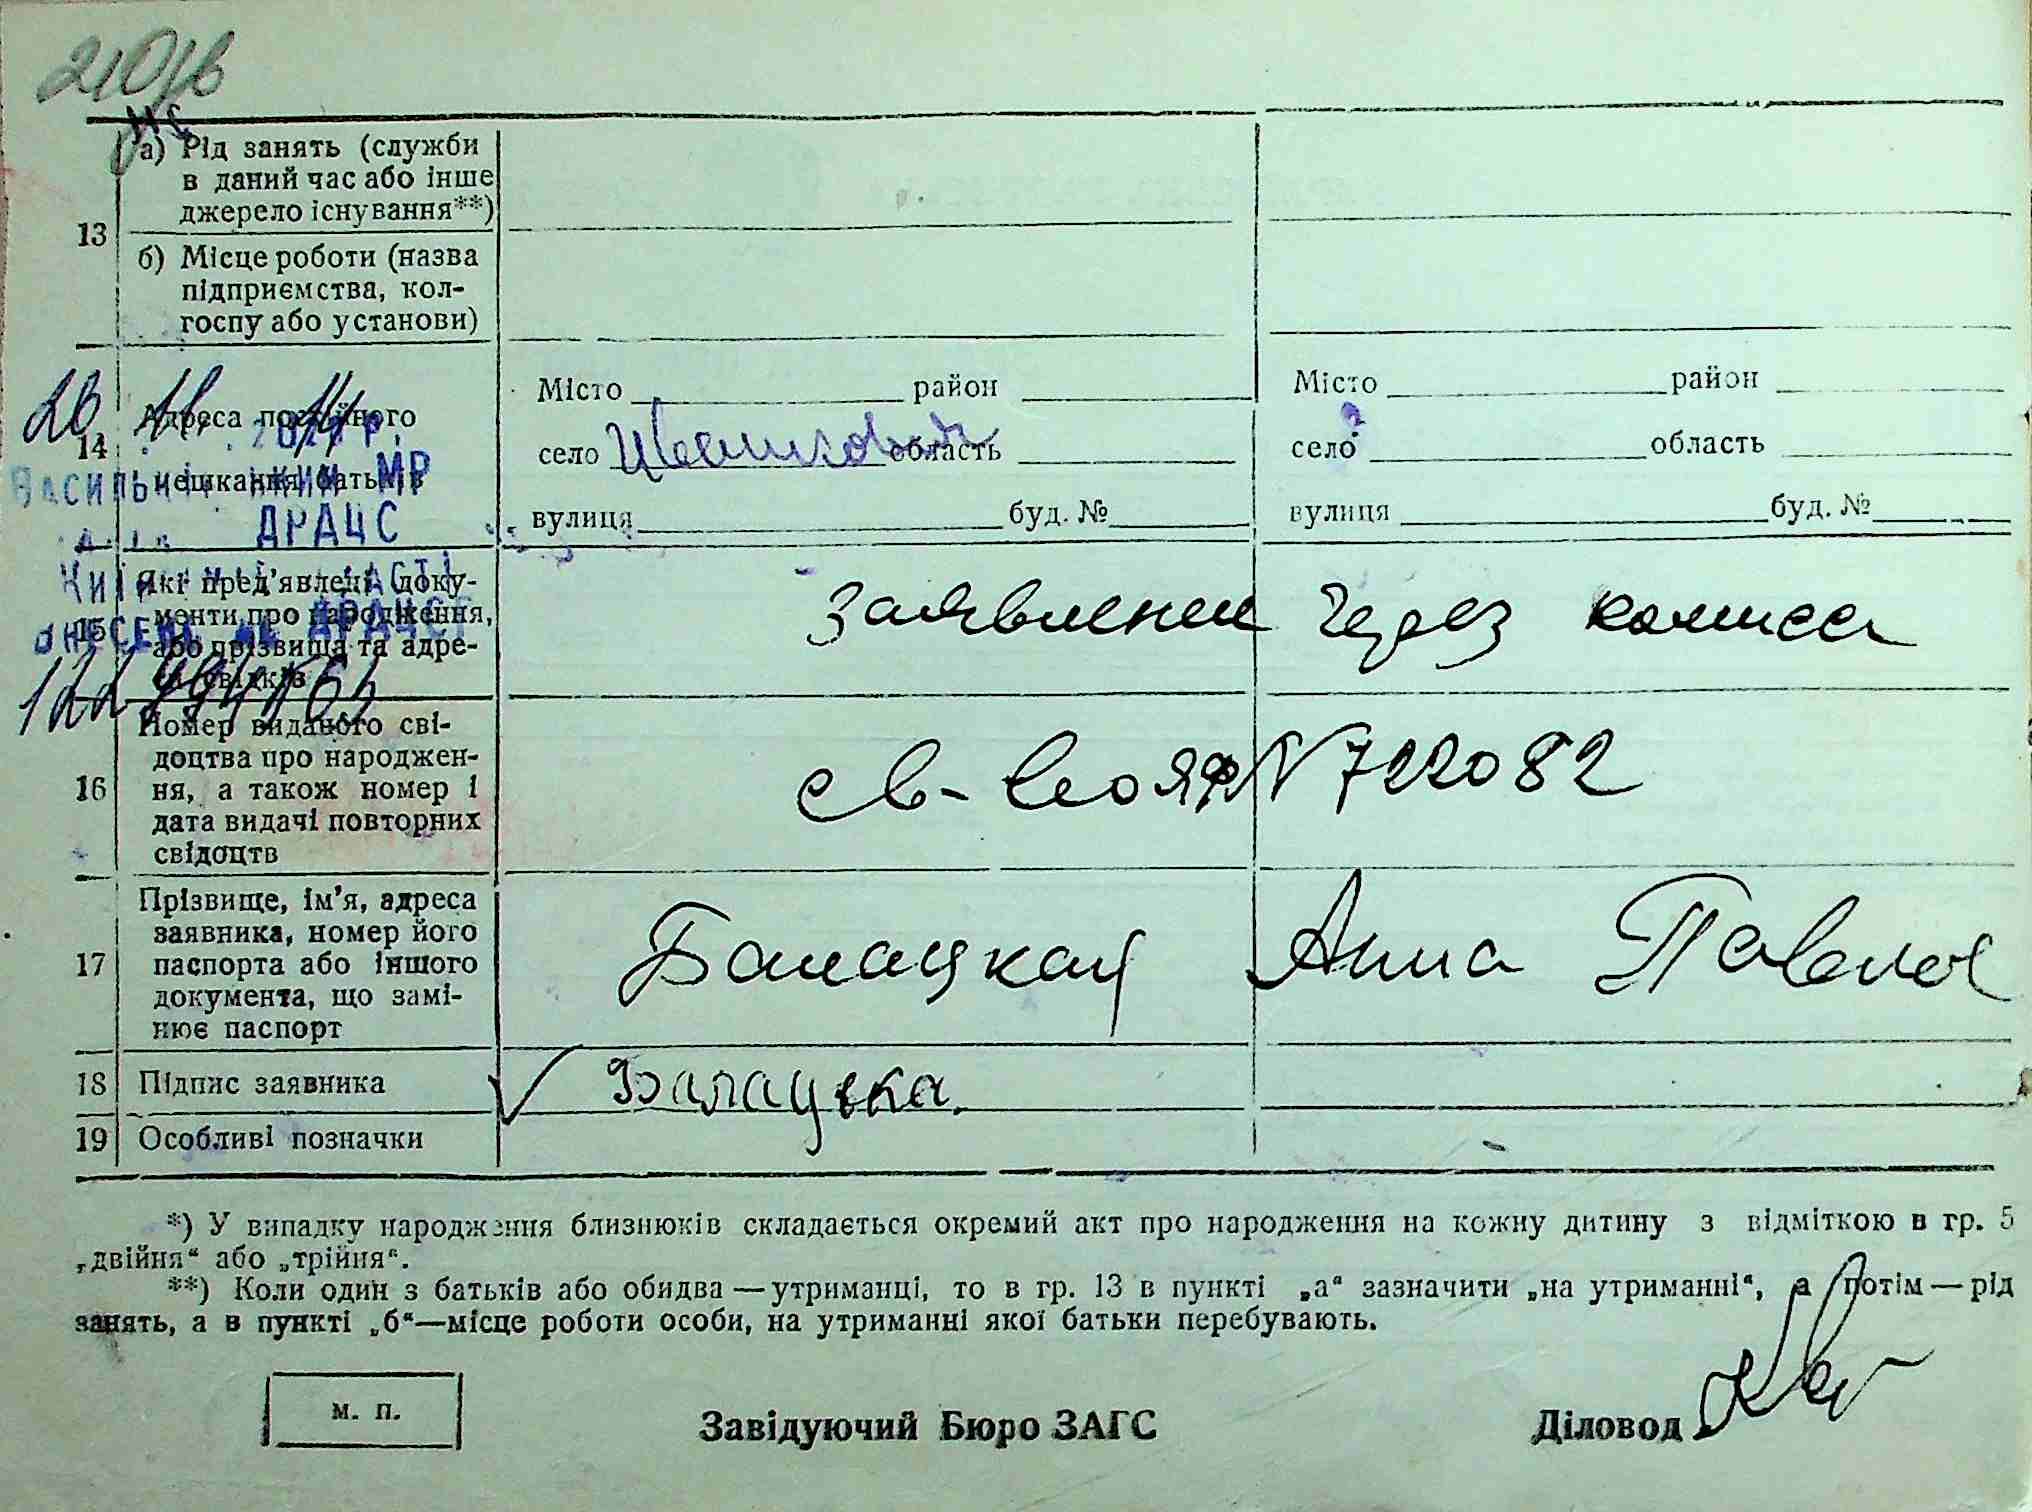 а) Рід занять (служби
в даний час або інше
джерело існування**)
13
б) Місце роботи (назва
підприємства, кол-
госпу або установи)
14
Адреса постійного
мешкання батьків
Місто район
село область
вулиця буд. №
Місто район
село область
вулиця буд. №
МР
ДРАЦС
15
Які пред'явлені доку-
менти про народження,
або прізвища та адре-
си свідків
Заявление Через комисс
16
Номер виданого сві-
доцтва про народжен-
ня, а також номер і
дата видачі повторних
свідоцтв
св-во ЯФ N 722082
17
Прізвище, ім'я, адреса
заявника, номер його
паспорта або іншого
документа, що замі-
нює паспорт
Балацкая Анна Павлов
18 Підпис заявника
Балацька.
19 Особливі позначки
*) У випадку народження близнюків складається окремий акт про народження на кожну дитину з відміткою в гр. 5
„двійня“ або „трійня“.
**) Коли один з батьків або обидва — утриманці, то в гр. 13 в пункті „а“ зазначити „на утриманні“, а потім — рід
занять, а в пункті „б“ — місце роботи особи, на утриманні якої батьки перебувають.
м. п.
Завідуючий Бюро ЗАГС
Діловод